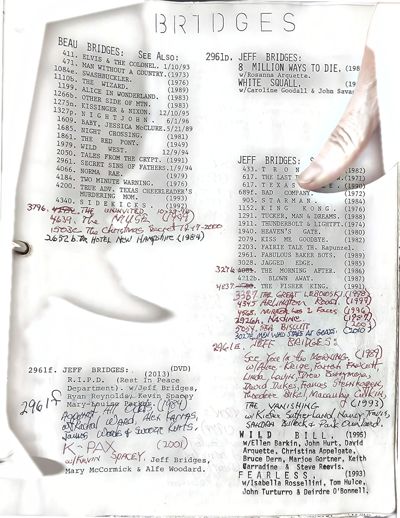 BRIDGES
BEAU BRIDGES: SEE ALSO:
411. ELVIS & THE COLONEL. 1/10/93
471. MAN WITHOUT A COUNTRY. (1973)
1084e. SWASHBUCKLER. (1976)
1110b. THE WIZARD. (1989)
1199. ALICE IN WONDERLAND. (1983)
1266b. OTHER SIDE OF MTN. (1983)
1275b. KISSINGER & NIXON. 12/10/95
1327b. NIGHTJOHN. 6/1/96
1609. BABY. JESSICA McCLURE. 5/21/89
1685. NIGHT CROSSING. (1981)
1861. THE RED PONY. (1949)
1979. WILD WEST. 12/9/94
2050. TALES FROM THE CRYPT. (1991)
2961. SECRET SINS OF FATHERS. 1/9/94
4066. NORMA RAE. (1979)
4184. TWO MINUTE WARNING. (1976)
4200. TRUE ADV. TEXAS CHEERLEADER'S
MURDERING MOM. (1993)
4340. SIDEKICKS. (1992)
3796. THE UNINVITED
4639. THE MUSE
1503c. The Christmas Secret 12-17-2000
2652b. Da HOTEL NEW HAMPSHIRE (1984)
2961f. JEFF BRIDGES: (DVD)
(2013)
R.I.P.D. (Rest In Peace
Department). w/Jeff Bridges,
Ryan Reynolds, Kevin Spacey
Mary-Louise Parker.
2961f
AGAINST ALL ODDS (1984)
W/RACHEL WARD, ALEX KARRAS,
JAMES WOODS & SWOOZIE KURTZ.
K-PAX (2001)
W/KEVIN SPACEY. Jeff Bridges,
Mary McCormick & Alfe Woodard.
2961b. JEFF BRIDGES:
8 MILLION WAYS TO DIE.
w/Rosanna Arquette.
WHITE SQUALL.
w/Caroline Goodall & John Savag
JEFF BRIDGES:
433. TRON (1982)
617. THE LAST (1971)
617. TEXAS
689f. BAD COMPANY. (1972)
905. STARMAN. (1984)
1152. KING KONG.
1291. TUCKER, MAN & DREAMS. (1988)
1911. THUNDERBOLT & LIGHTFT. (1974)
1940. HEAVEN'S GATE. (1980)
2079. KISS ME GOODBYE. (1982)
2203. FAIRIE TALE TH. Rapunsel.
2961. FABULOUS BAKER BOYS. (1989)
3028. JAGGED EDGE. (1985)
3274. THE MORNING AFTER. (1986)
4212b. BLOWN AWAY.
4237. THE FISHER KING. (1991)
3387 THE GREAT LEBOWSKI (1998)
4345 ARLINGTON ROAD (1999)
4568. MIRROR HAS 2 FACES (1996)
2926h. NADINE. (1987)
5054 SEA BISCUIT
3027E MEN WHO STARE AT GOATS. (2010)
2961e. JEFF BRIDGES:
See You In The MORNING, (1989)
W/Alice Krige, Farrah Fawcett,
Linda Lavin, Drew Barrymore,
David Dukes, Frances Sternhagen,
Theodore Bikel, Macaulay Culkin.
THE VANISHING (1993)
w/Kiefer Sutherland, Nancy Travis,
SANDRA BULLOCK & Park Overall.
WILD BILL. (1995)
w/Ellen Barkin, John Hurt, David
Arquette, Christina Appelgate,
Bruce Dern, Marjoe Gortner, Keith
Carradine & Steve Reevis.
FEARLESS. (1993)
w/Isabella Rossellini, Tom Hulce,
John Turturro & Deirdre O'Bonnell.